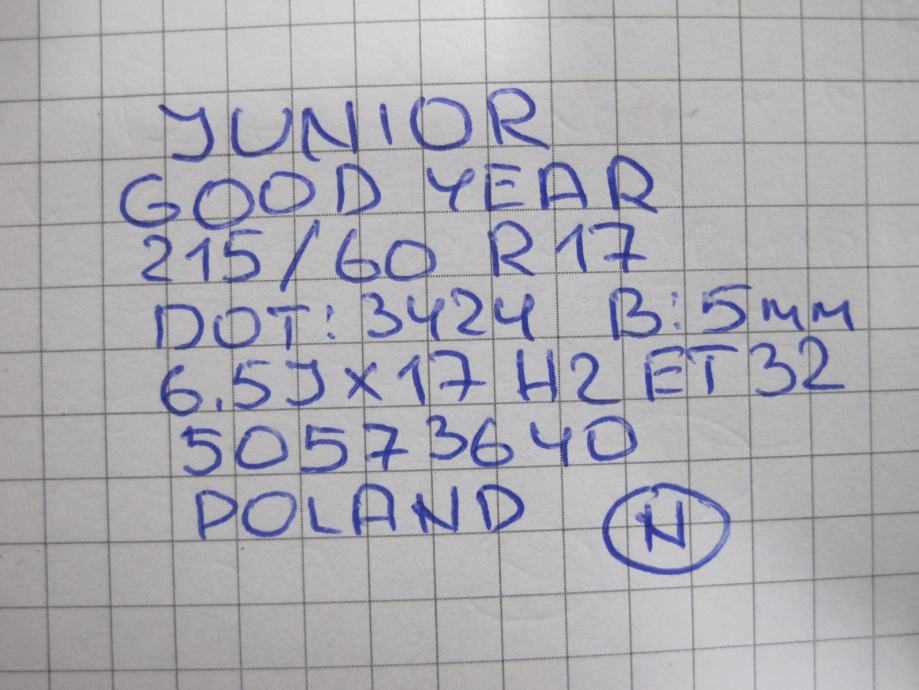 JUNIOR
GOOD YEAR
215/60 R17
DOT: 3424 B: 5mm
6.5J x 17 H2 ET 32
50573640
POLAND N